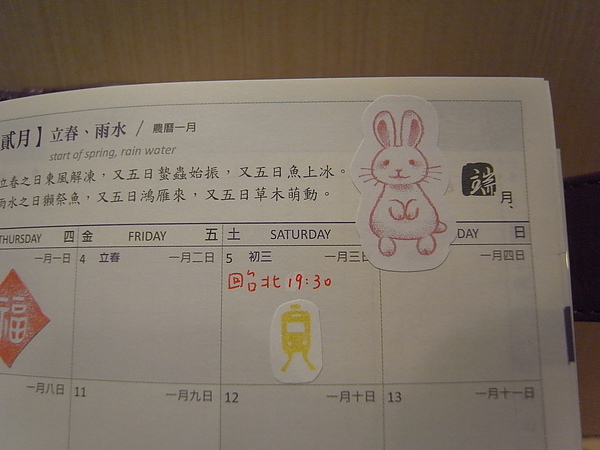 貳月】立春、雨水 / 農曆一月
start of spring, rain water
立春之日東風解凍，又五日蟄蟲始振，又五日魚上冰。
雨水之日獺祭魚，又五日鴻雁來，又五日草木萌動。
端
月、
THURSDAY 四 金 FRIDAY 五 土 SATURDAY DAY 日
一月一日 4 立春 一月二日 5 初三 一月三日 一月四日
回台北 19:30
福
一月八日 11 一月九日 12 一月十日 13 一月十一日